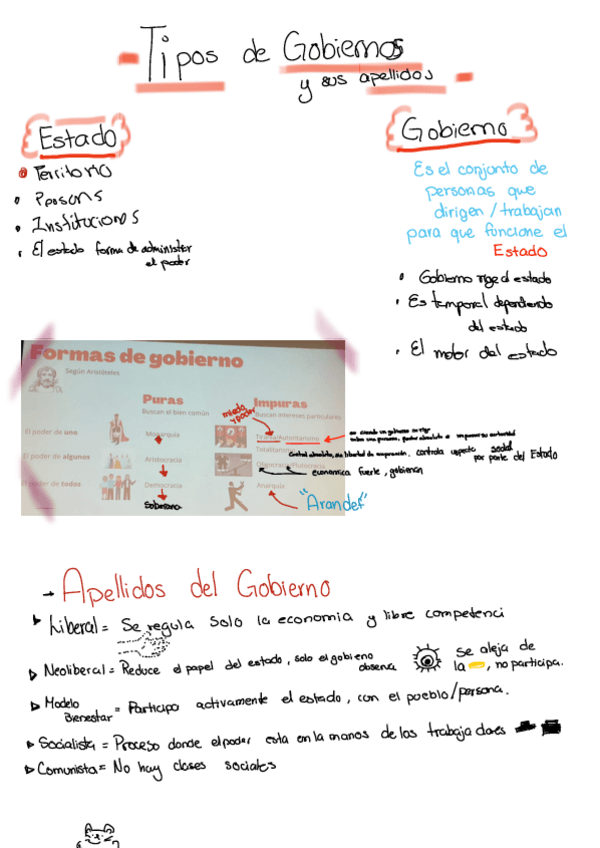 Tipos de Gobiernos
y sus apellidos
Estado
Territorio
Persons
Instituciones
El estado forma de administer
el poder
Gobierno
Es el conjunto de
personas que
dirigen / trabajan
para que funcione el
Estado
Gobierno rige el estado
Es temporal dependiendo
del estado
El motor del estado
Formas de gobierno
Según Aristóteles
Puras
Buscan el bien común
Impuras
Buscan intereses particulares
miedo
y poder
El poder de uno
Monarquía
Tiranía/Autoritarismo
Totalitarismo
El poder de algunos
Aristocracia
Oligarquía/Plutocracia
El poder de todos
Democracia
Anarquía
Soberana
controla aspecto social
por parte del Estado
economica fuerte, gobiernan
"Arandef"
→ Apellidos del Gobierno
Liberal = Se regula solo la economia y libre competenci
Neoliberal = Reduce el papel del estado, solo el gobieno
observa
se aleja de
la , no participa.
Modelo
Bienestar = Participo activamente el estado, con el pueblo/persona.
Socialista = Proceso donde el poder esta en la manos de los trabaja does
Comunista = No hay clases sociales